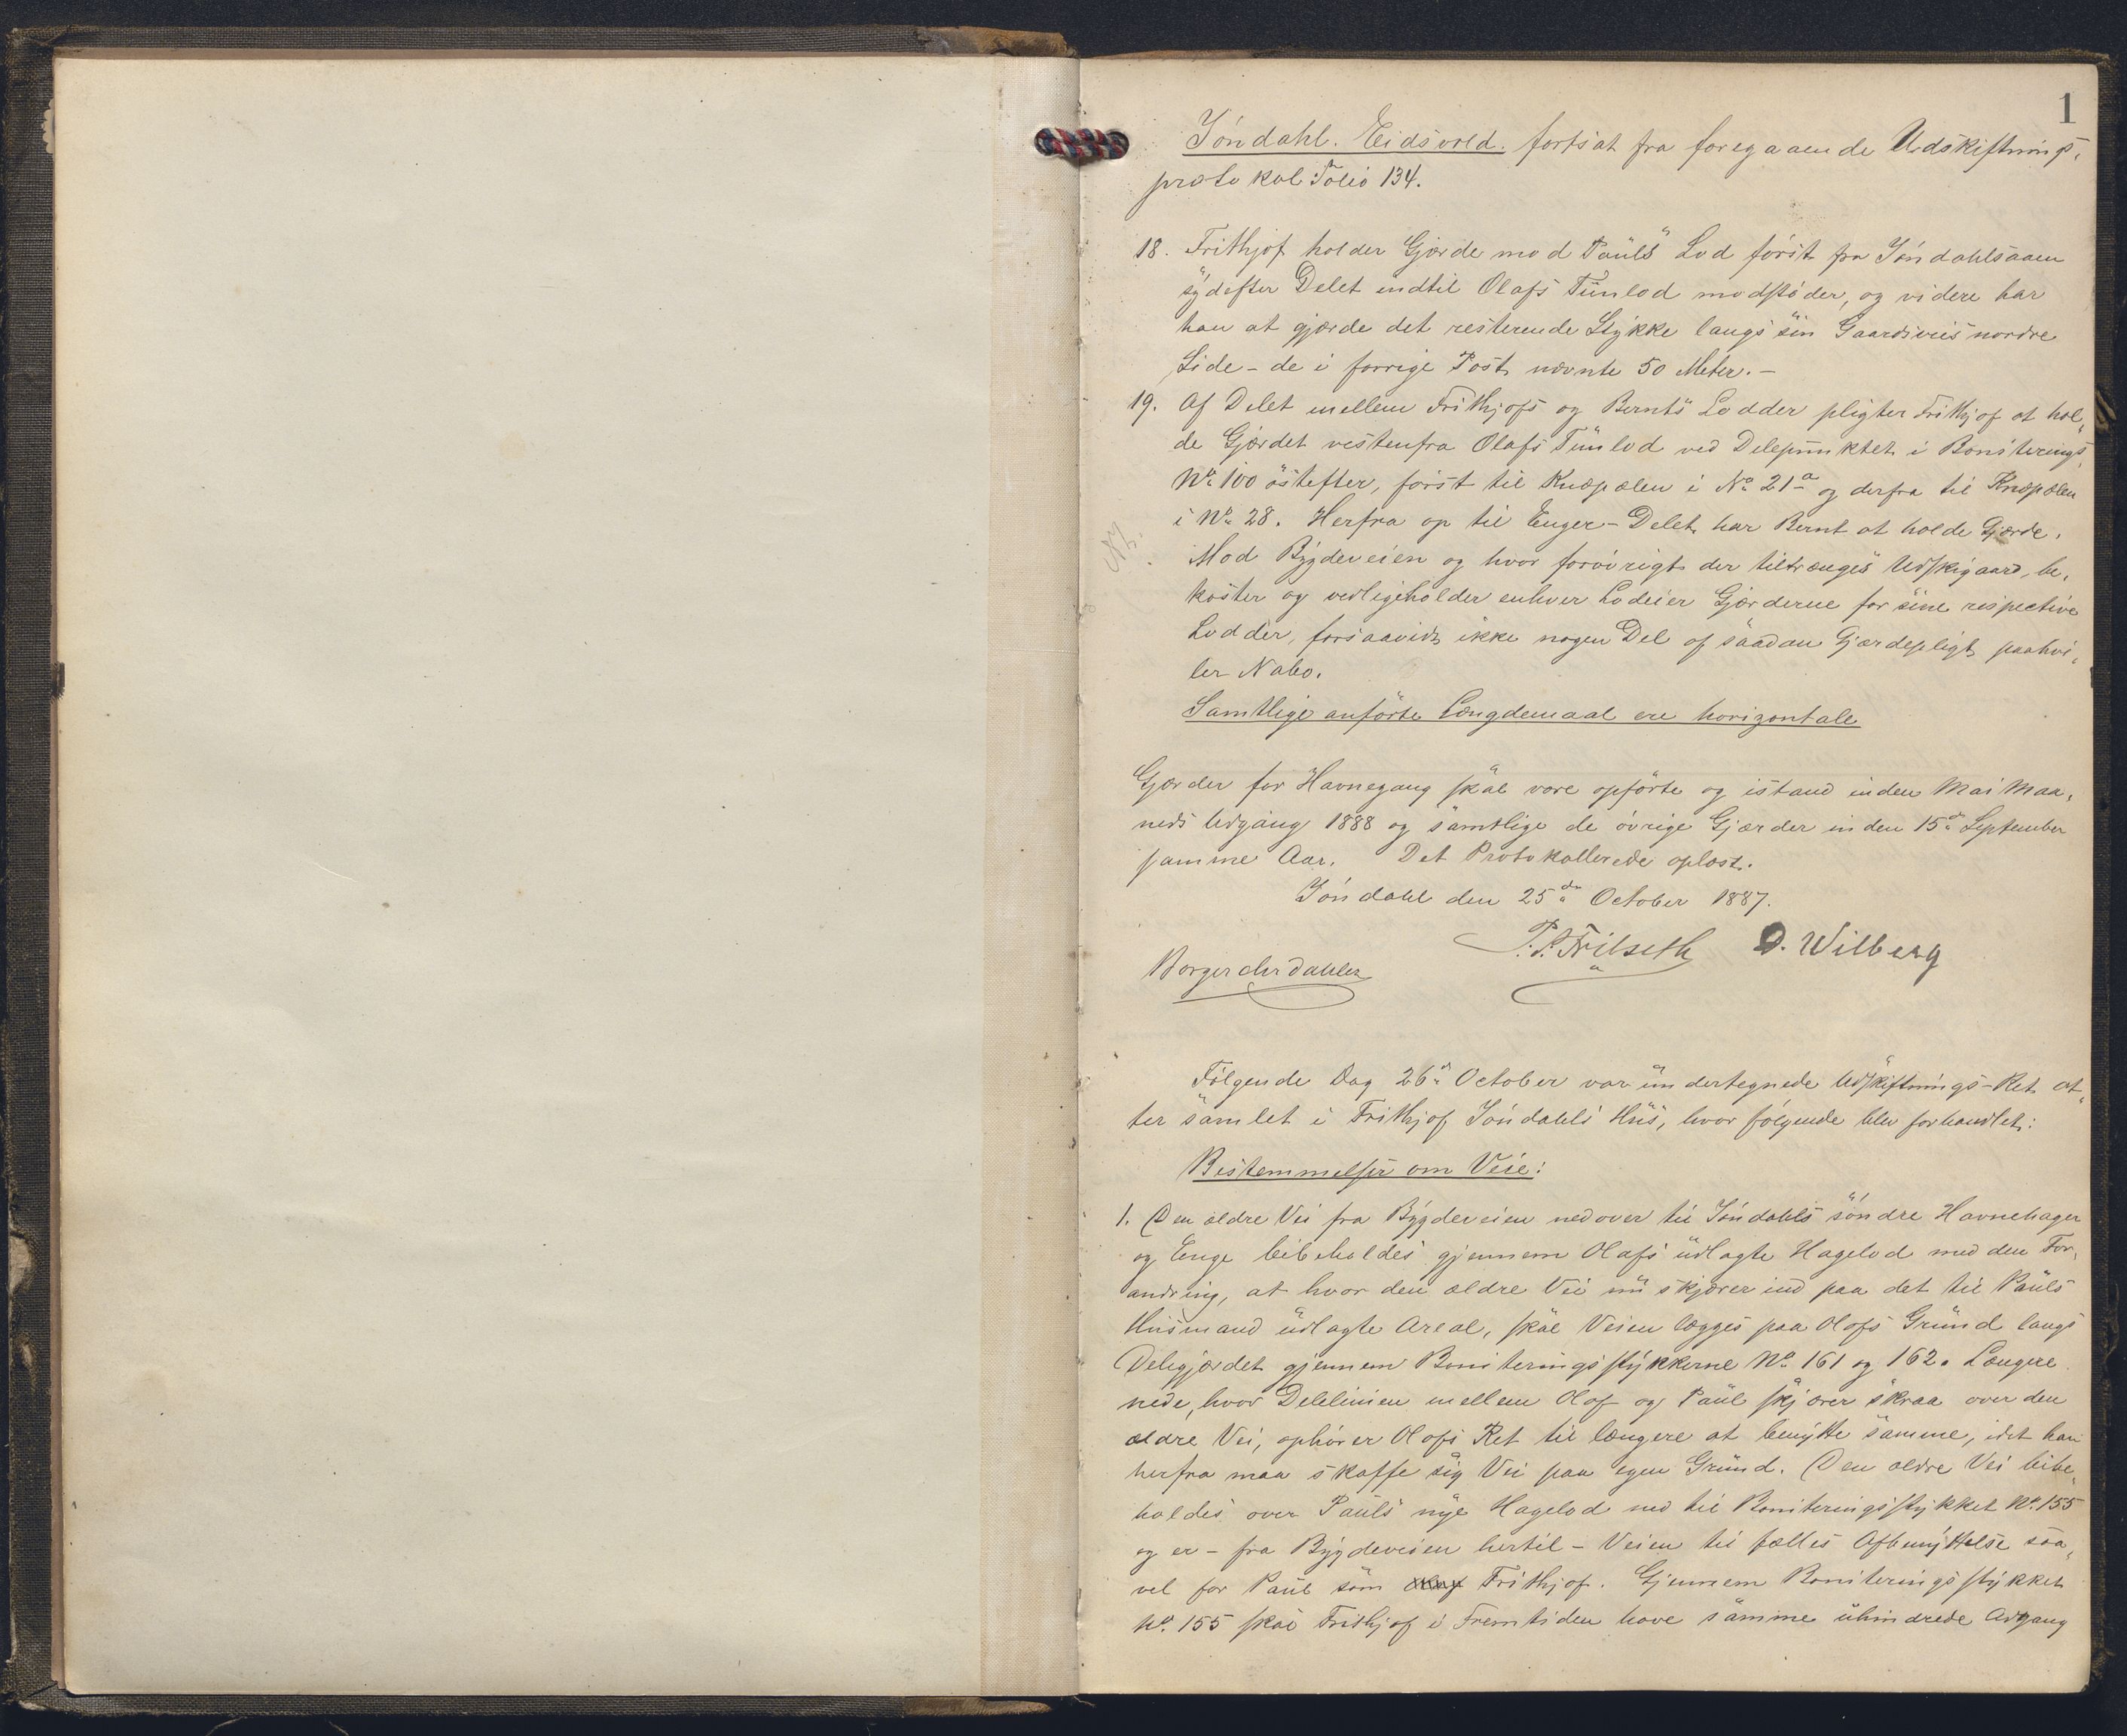 1
Jøndahl. Eidsvold. fortsat fra foregaaende Udskiftnings-
protokol Folio 134.
18. Frithjof holder Gjærde mod Pauls Lod først fra Jøndahlsaaen
sydefter Delet indtil Olafs Tunlod modstøder, og videre har
han at gjærde det resterende Stykke langs sin Gaardsveis nordre
Side - de i forrige Post nævnte 50 Meter. -
19. Af Delet mellem Frithjofs og Bernts Lodder pligter Frithjof at hol-
de Gjærdet vestenfra Olafs Tunlod ved Delepunktet i Boniterings
No 100 østefter, først til Knæpælen i No 21a og derfra til Knæpælen
i No 28. Herfra op til Enger-Delet har Bernt at holde Gjærde.
Mod Bygdeveien og hvor forøvrigt der tiltrænges Udskigaard, be-
koster og vedligeholder enhver Lodeier Gjærderne for sine respective
Lodder, forsaavidt ikke nogen Del af saadan Gjærdepligt paahvi-
ler Nabo.
Samtlige anførte Længdemaal ere horizontale
Gjærder for Havnegang skal være opførte og istand inden Mai Maa-
neds Udgang 1888 og samtlige de øvrige Gjærder inden 15de September
samme Aar. Det Protokollerede oplæst.
Jøndahl den 25de October 1887.
P. P. Frilseth O. Wilberg
Borger Chr Dahler
Følgende Dag 26de October var undertegnede Udskiftnings-Ret at-
ter samlet i Frithjof Jøndahls Hus, hvor følgende blev forhandlet:
Bestemmelser om Veie:
1. Den ældre Vei fra Bygdeveien nedover til Jøndahls søndre Havnehager
og Enge beibeholdes gjennem Olafs udlagte Hagelod med den For-
andring, at hvor den ældre Vei nu skjærer ind paa det til Pauls
Husmand udlagte Areal, skal Veien lægges paa Olafs Grund langs
Delegjærdet gjennem Boniteringsstykkerne No 161 og 162. Længere
nede, hvor Delelinien mellem Olaf og Paul skjærer skraa over den
ældre Vei, ophører Olafs Ret til længere at benytte samme, idet han
herfra maa skaffe sig Vei paa egen Grund. Den ældre Vei beibe-
holdes over Pauls nye Hagelod ned til Boniteringsstykket No. 155
og er - fra Bygdeveien hertil - Veien til fælles Afbenyttelse saa-
vel for Paul som Frithjof. Gjennem Boniteringsstykket
No. 155 skal Frithjof i Fremtiden have samme uhindrede Adgang